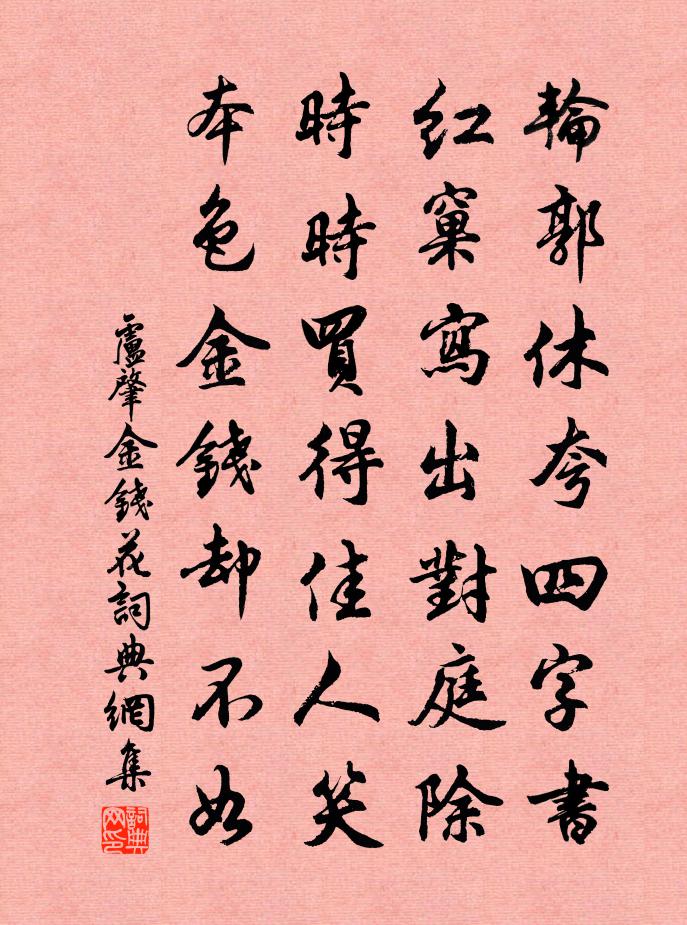 輪郭休夸四字書
紅窠寫出對庭除
時時買得佳人笑
本色金錢却不如
盧肇金錢花詞典網集
詞典网印